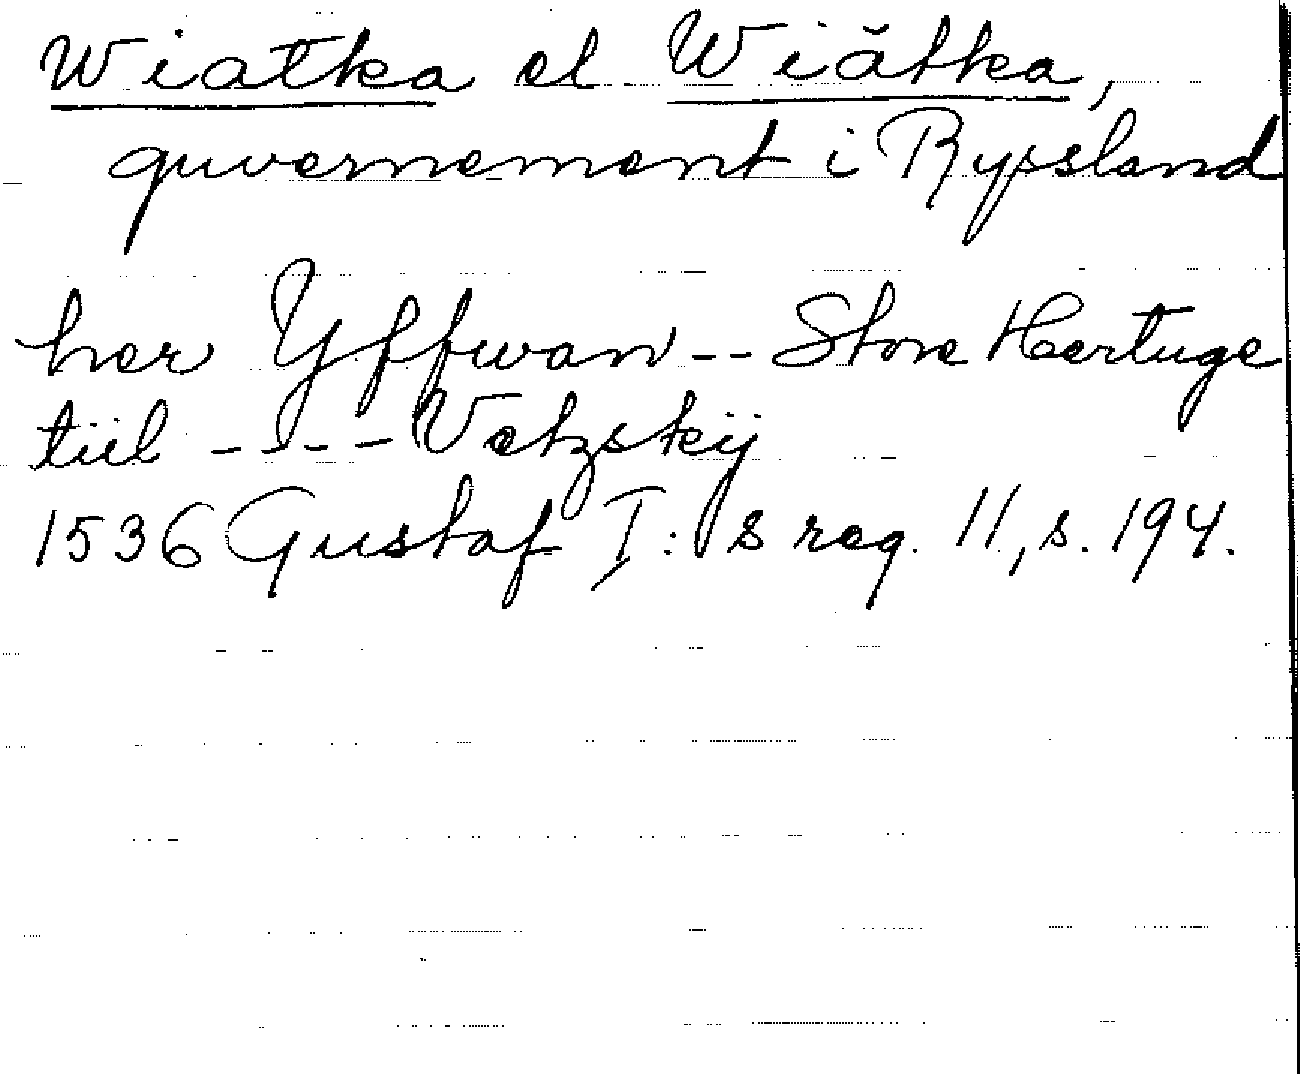 Wiatka el Wiätka,
guvernement i Ryssland
her Yffwan -- Store Hertuge
tiil - - - - Vetzskij
1536 Gustaf I:s reg. 11, s. 194.